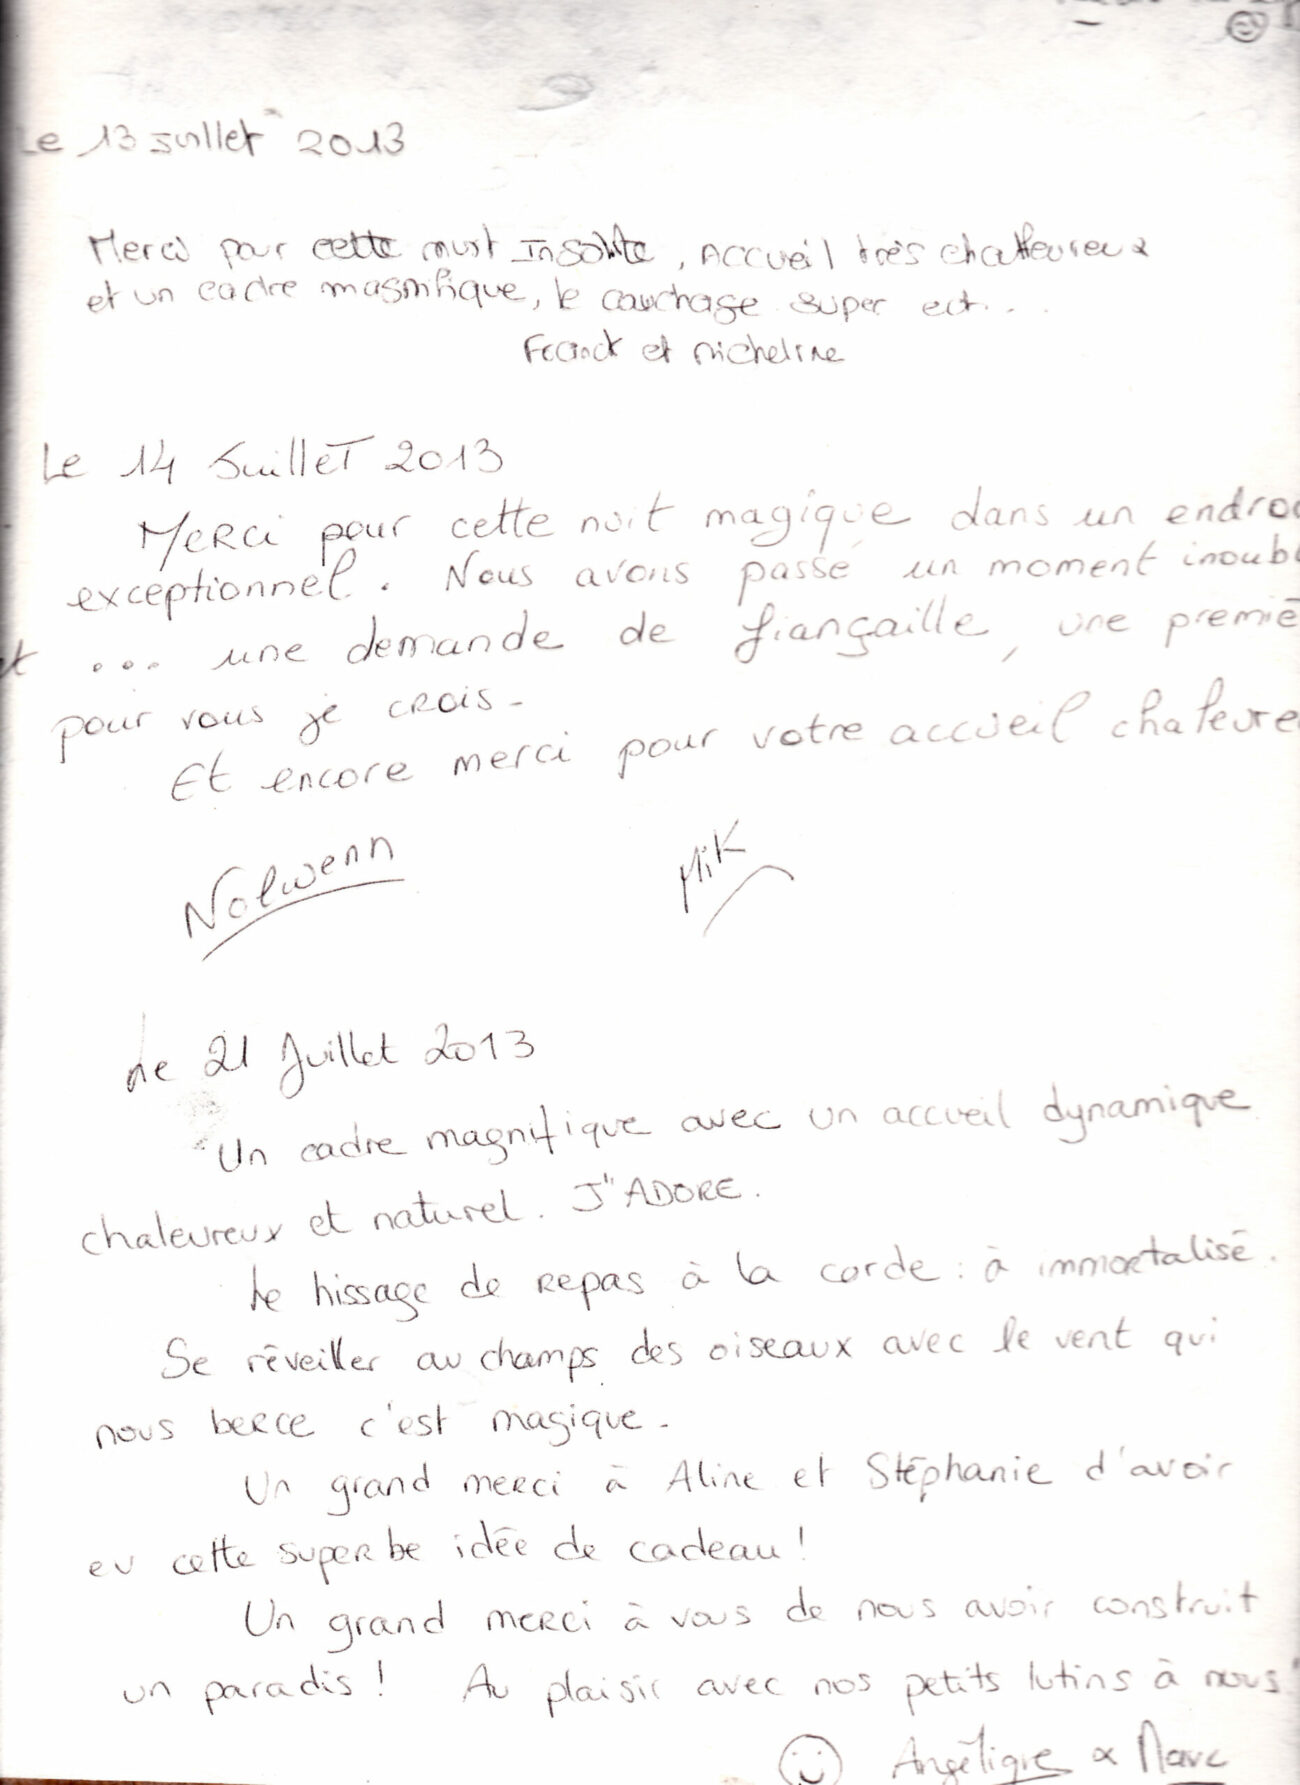 Le 13 Juillet 2013
Merci pour cette nuit Insolite, Accueil très chatteureux
et un cadre magnifique, le couchage super ect...
Franck et Micheline
Le 14 Juillet 2013
Merci pour cette nuit magique dans un endro
exceptionnel. Nous avons passé un moment inoub
et ... une demande de fiançaille, une premiè
pour vous je crois.
Et encore merci pour votre accueil chaleure
Nolwenn Mik
Le 21 Juillet 2013
Un cadre magnifique avec un accueil dynamique
chaleureux et naturel. J'ADORE.
Le hissage de repas à la corde : à immortalisé.
Se réveiller au champs des oiseaux avec le vent qui
nous berce c'est magique.
Un grand merci à Aline et Stéphanie d'avoir
eu cette superbe idée de cadeau !
Un grand merci à vous de nous avoir construit
un paradis ! Au plaisir avec nos petits lutins à nous !
Angélique & Marc